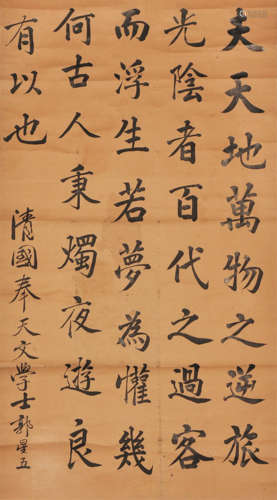 夫天地萬物之逆旅
光陰者百代之過客
而浮生若夢為懽幾
何古人秉燭夜遊良
有以也
清國奉天文學士郭星五